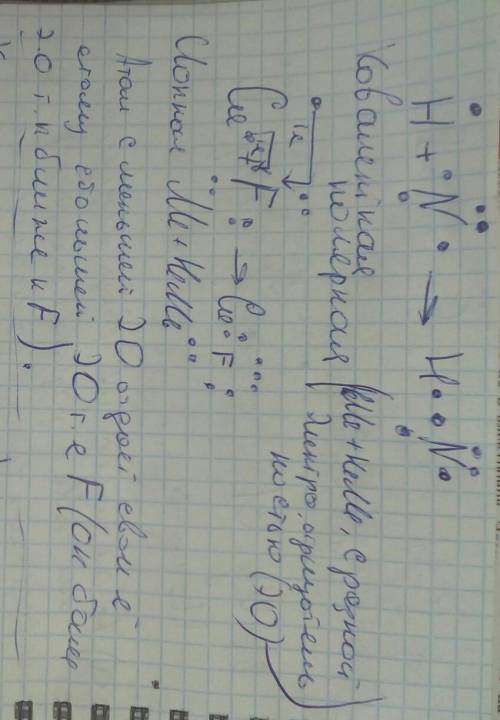 H + N → H N
Ковалентная
полярная (неМе + неМе, с разной
электроотрицатель
ностью (ЭО)
1е
F → F
Ионная Ме + неМе
Атом с меньшей ЭО отдает свои е
атому с большей ЭО т.е F (он более
ЭО т.к ближе к F).